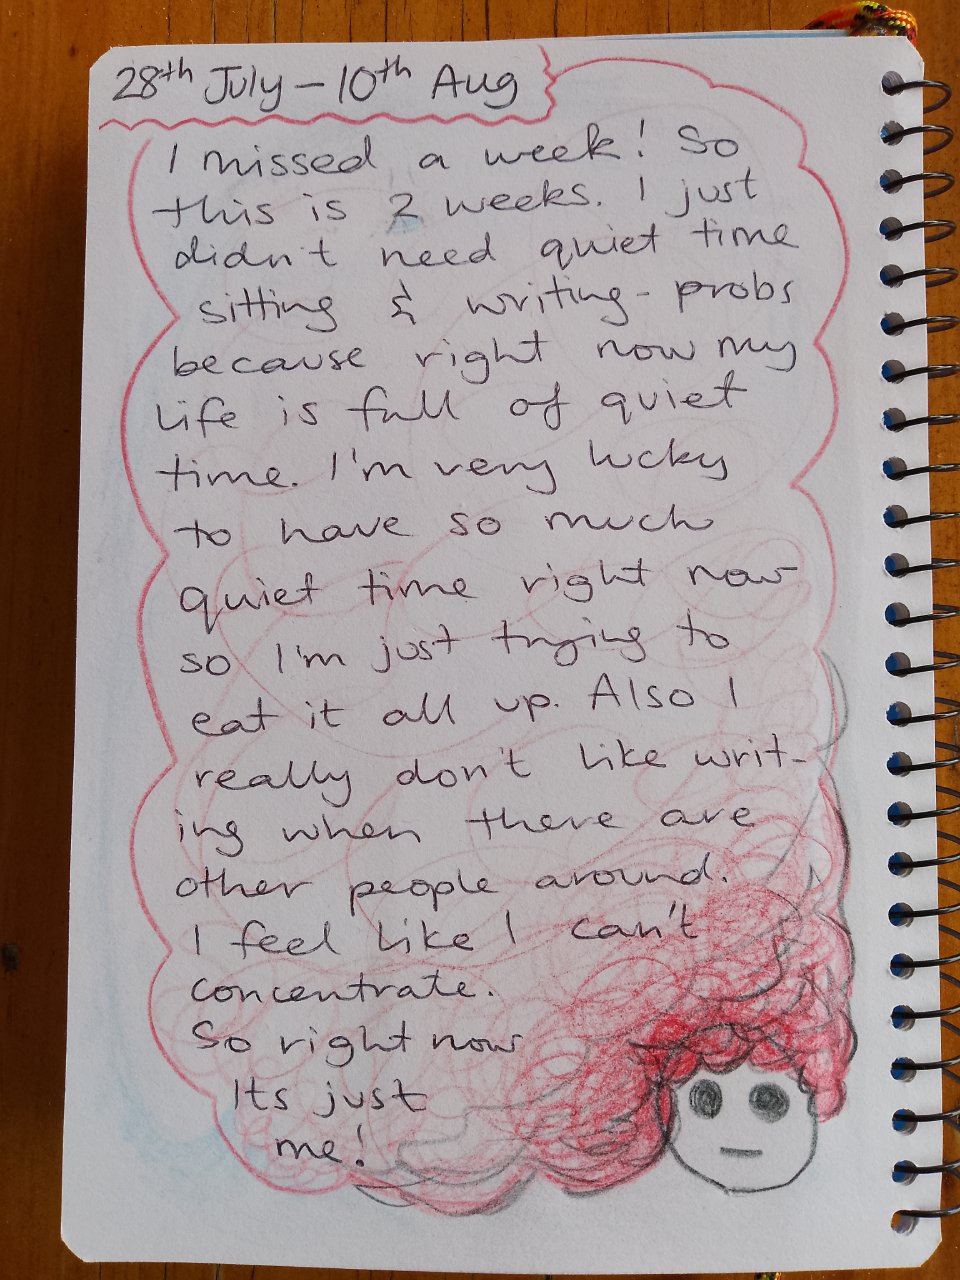 28th July – 10th Aug
I missed a week! So
this is 2 weeks. I just
didn't need quiet time
sitting & writing - probs
because right now my
life is full of quiet
time. I'm very lucky
to have so much
quiet time right now
so I'm just trying to
eat it all up. Also I
really don't like writ-
ing when there are
other people around.
I feel like I can't
concentrate.
So right now
Its just
me!